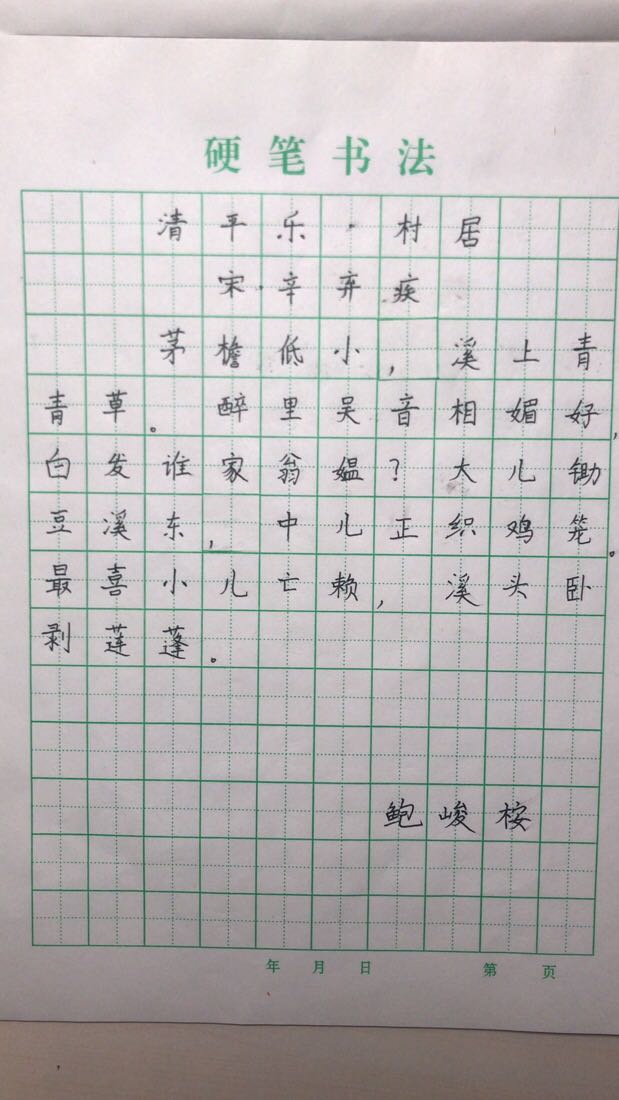 硬笔书法
清平乐·村居
宋·辛弃疾
茅檐低小,溪上青
青草。醉里吴音相媚好,
白发谁家翁媪?大儿锄
豆溪东,中儿正织鸡笼。
最喜小儿亡赖,溪头卧
剥莲蓬。
鲍峻桉
年 月 日 第 页